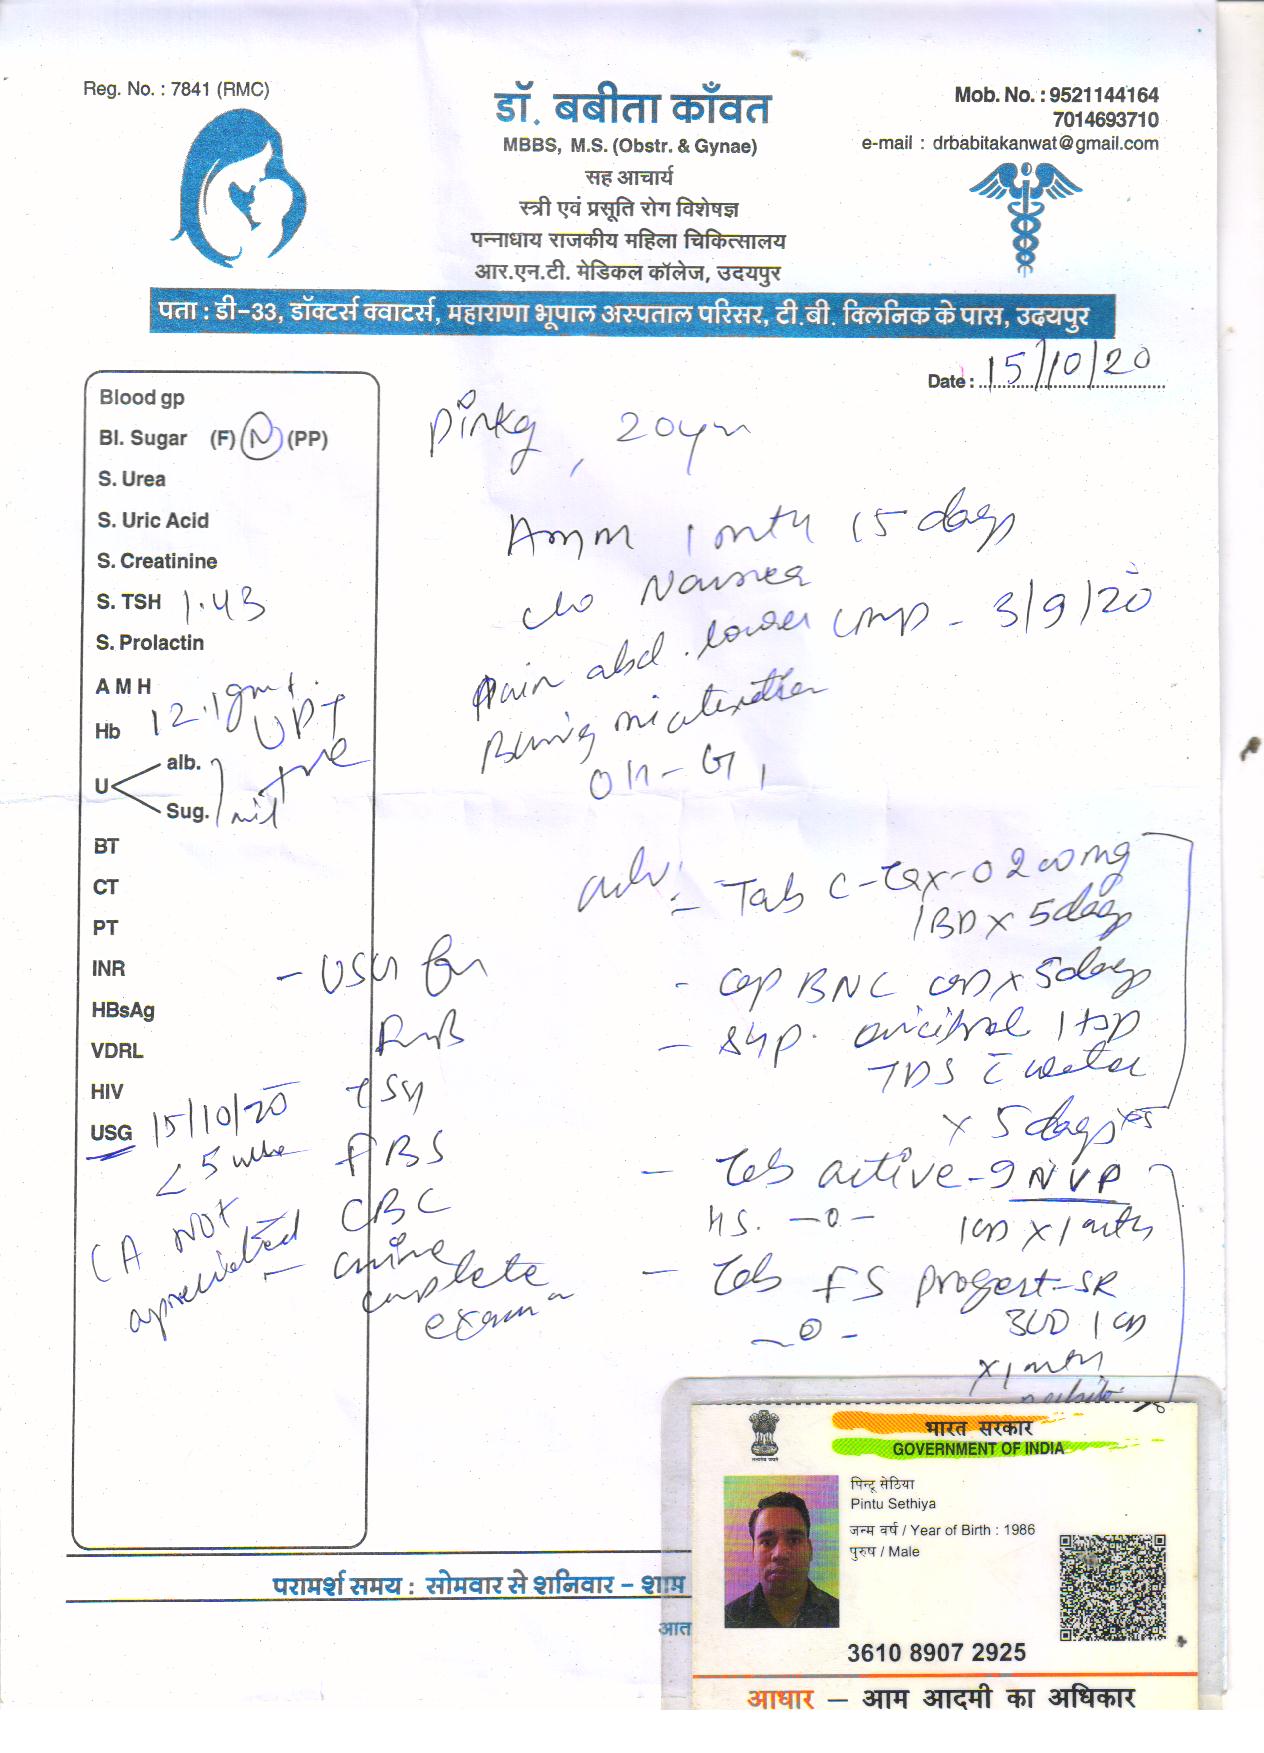 Reg. No. : 7841 (RMC)
डॉ. बबीता काँवत
MBBS, M.S. (Obstr. & Gynae)
सह आचार्य
स्त्री एवं प्रसूति रोग विशेषज्ञ
पन्नाधाय राजकीय महिला चिकित्सालय
आर.एन.टी. मेडिकल कॉलेज, उदयपुर
Mob. No. : 9521144164
7014693710
e-mail : drbabitakanwat@gmail.com
पता : डी-33, डॉक्टर्स क्वाटर्स, महाराणा भूपाल अस्पताल परिसर, टी.बी. क्लिनिक के पास, उदयपुर
Date : 15/10/20
Blood gp
Bl. Sugar (F) N (PP)
S. Urea
S. Uric Acid
S. Creatinine
S. TSH 1.43
S. Prolactin
A M H
Hb 12.1gm
UPT
+ve
U alb.
Sug. nil
BT
CT
PT
INR
HBsAg
VDRL
HIV
USG 15/10/20
< 5
CA NOT
appreciated
- USG for
TSH
FBS
CBC
- urine
complete
exam
Pinky, 20yrs
1 mth 15 days
c/o Nausea
Pain abd. lower LMP - 3/9/20
Burning micturition
O/H - G1
adv:- Tab C-Tax-O 200mg
1BD x 5days
- Cap BNC OD x 5days
- Syp. 1 tsp
TDS c water
x 5days
- Tab active-9 NVP
HS. -0- 1OD x 1 mth
- Tab FS Progest-SR
-0- 300 1 OD
x 1 mth
भारत सरकार
GOVERNMENT OF INDIA
पिन्टू सेठिया
Pintu Sethiya
जन्म वर्ष / Year of Birth : 1986
पुरुष / Male
3610 8907 2925
आधार — आम आदमी का अधिकार
परामर्श समय : सोमवार से शनिवार - शाम
आत